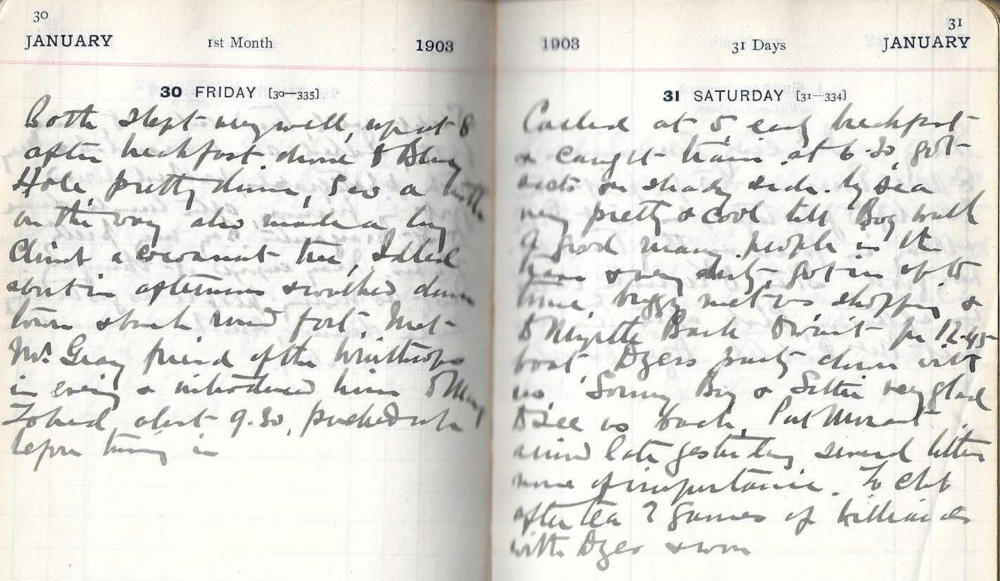 30
JANUARY 1st Month 1903
30 FRIDAY [30—335]
Both slept very well, up at 8
after breakfast drove to Blue
Hole, pretty drive, saw a
on the way also made a boy
climb a cocoanut tree, Idled
about in afternoon & walked down
town & back round fort. Met
Mr. Gray friend of the Winthrops
in evening & introduced him to May
To bed about 9.30, packed
before turning in
1903 31 Days 31 JANUARY
31 SATURDAY [31—334]
Called at 5, early breakfast
& caught train at 6.30, got
seats on shady side. by sea
very pretty & cool till Bog walk
A good many people in the
train & very dusty got in up to
time, buggy met us shopping &
to Myrtle Bank to wait for 12.45
boat. Dyers party came with
us. Sonny Boy & very glad
to see us back. Pat
late yesterday several letters
none of importance. To club
after tea 2 games of billiards
with Dyer & won